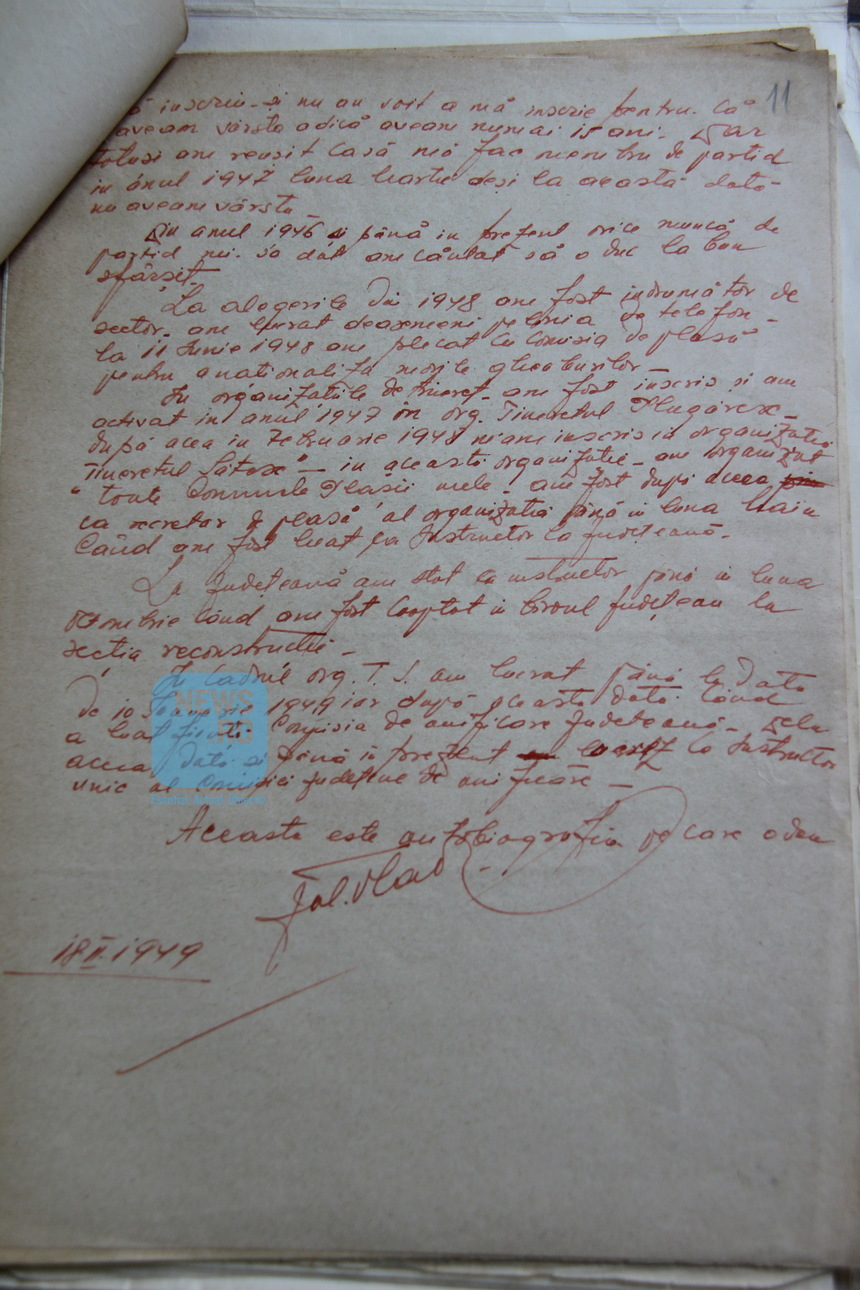 11
inscriu- și nu au voit a mă inscrie pentru. Că
aveam vârsta adică aveam numai 15 ani. Dar
totuși am reușit Casă mă fac membru de partid
in ănul 1947 luna Martie deși la această dată-
nu aveam vârsta
Din anul 1946 și până in prezent orice muncă de
partid mi- sa dat am căutat să o duc la bun
sfârșit-
La alegerile din 1948 am fost indrumător de
sector- am lucrat deasemeni pe linia de telefon-
la 11 Iunie 1948 am plecat cu Comisia de plasă
pentru a nationaliza morile gheaburilor-
In organizatiile de tineret- am fost inscris și am
activat in anul 1947 in org. Tineretul Plugăresc-
după acea in Februarie 1948 m-am inscris in organizatia
Tineretul Sătesc"- in aceasti organizatie- am organizat
toate Comunele Plasii mele- am fost după aceea
ca secretar de plasă al organizatia până in luna Maiu
Când am fost luat ca Instructor la județeană-
La Județeană am stat ca instructor până in luna
Octombrie când am fost Cooptat in biroul județean la
sectia reconstructie-
In Cadrul org. T. S. am lucrat până la Data
De 10 Ianuarie 1949 iar după aceasta dată Când
a luat Comisia de unificare Județeană- Dela
acea dată și până in prezent lucrez ca Instructor
unic al Comisiei județene de unificare-
Aceasta este autobiografia pe care o dau
Iol. Vlad
18 II 1949
NEWS